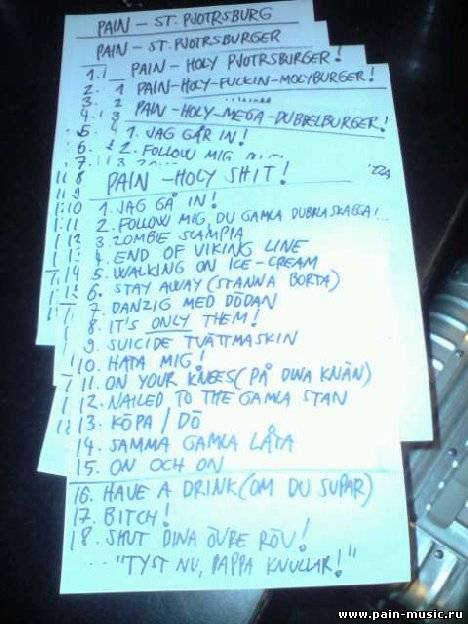 PAIN - ST. PJOTRSBURG
PAIN - ST. PJOTRSBURGER
PAIN - HOLY PJOTRSBURGER!
PAIN-HOLY-FUCKIN-MOLYBURGER!
PAIN-HOLY-MEGA-DUBBELBURGER!
1. JAG GÅR IN!
2. FOLLOW MIG
PAIN - HOLY SHIT!
1. JAG GÅ IN!
2. FOLLOW MIG, DU GAMLA
3. ZOMBIE SLAMPIA
4. END OF VIKING LINE
5. WALKING ON ICE-CREAM
6. STAY AWAY (STANNA BORTA)
7. DANZIG MED DÖDAN
8. IT'S ONLY THEM!
9. SUICIDE TVÄTTMASKIN
10. HATA MIG!
11. ON YOUR KNEES (PÅ DINA KNÄN)
12. NAILED TO THE GAMLA STAN
13. KÖPA / DÖ
14. SAMMA GAMLA LÅTA
15. ON OCH ON
16. HAVE A DRINK (OM DU SUPAR)
17. BITCH!
18. SHUT DINA ÖVRE RÖV!
... "TYST NU, PAPPA KNULLAR!"
www.pain-music.ru